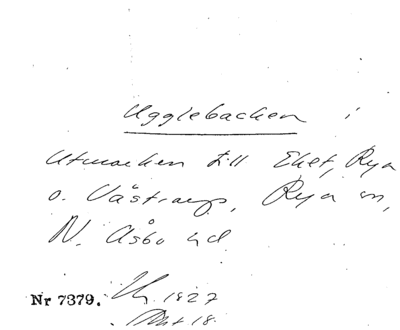 Ugglebacken i
Utmarken till Eket, Rya
o. Västraryp, Rya sn,
N. Åsbo hd
Nr 7379. 1827
Akt 18.